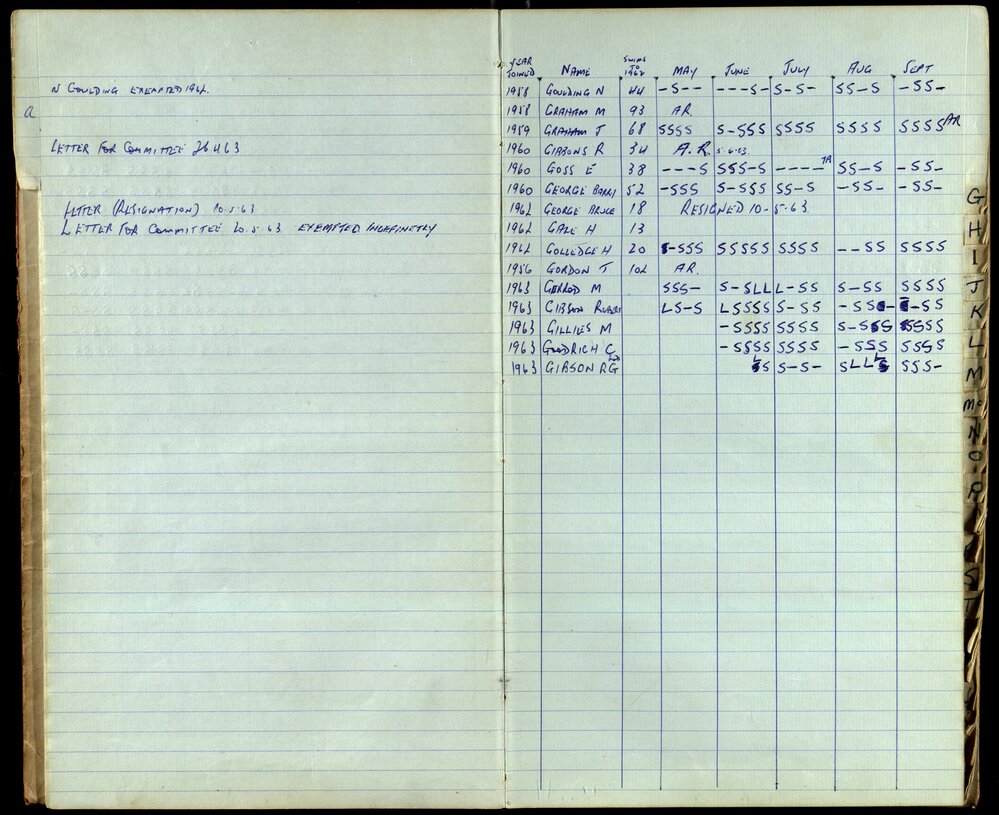 N GOULDING EXEMPTED 1962.
a
LETTER FOR COMMITTEE 26 4 63
LETTER (RESIGNATION) 10.5.63
LETTER FOR COMMITTEE 20.5.63 EXEMPTED INDEFINETLY
YEAR JOINED NAME SWIMS TO 1962 MAY JUNE JULY AUG SEPT
1958 GOULDING N 44 -S-- ---S- S-S- SS-S -SS-
1958 GRAHAM M 93 AR.
1959 GRAHAM J 68 SSSS S-SSS SSSS SSSS SSSS AR
1960 GIBBONS R 34 A.R. 5.6.63
1960 GOSS E 38 ---S SSS-S ---- TA SS-S -SS-
1960 GEORGE BARRY 52 -SSS S-SSS SS-S -SS- -SS-
1962 GEORGE BRUCE 18 RESIGNED 10-5-63.
1962 GALE H 13
1962 GOLLEDGE H 20 S-SSS SSSSS SSSS --SS SSSS
1956 GORDON T 102 AR.
1963 GERROD M SSS- S-SLL L-SS S-SS SSSS
1963 GIBSON ROBERT LS-S LSSSS S-SS -SSS- S-SS
1963 GILLIES M -SSSS SSSS S-SSS SSSS
1963 GOODRICH C -SSSS SSSS -SSS SSSS
1963 GIBSON RG LS S-S- SLLL SSS-
G
H
I
J
K
L
M
Mc
N
O
P
R
S
T